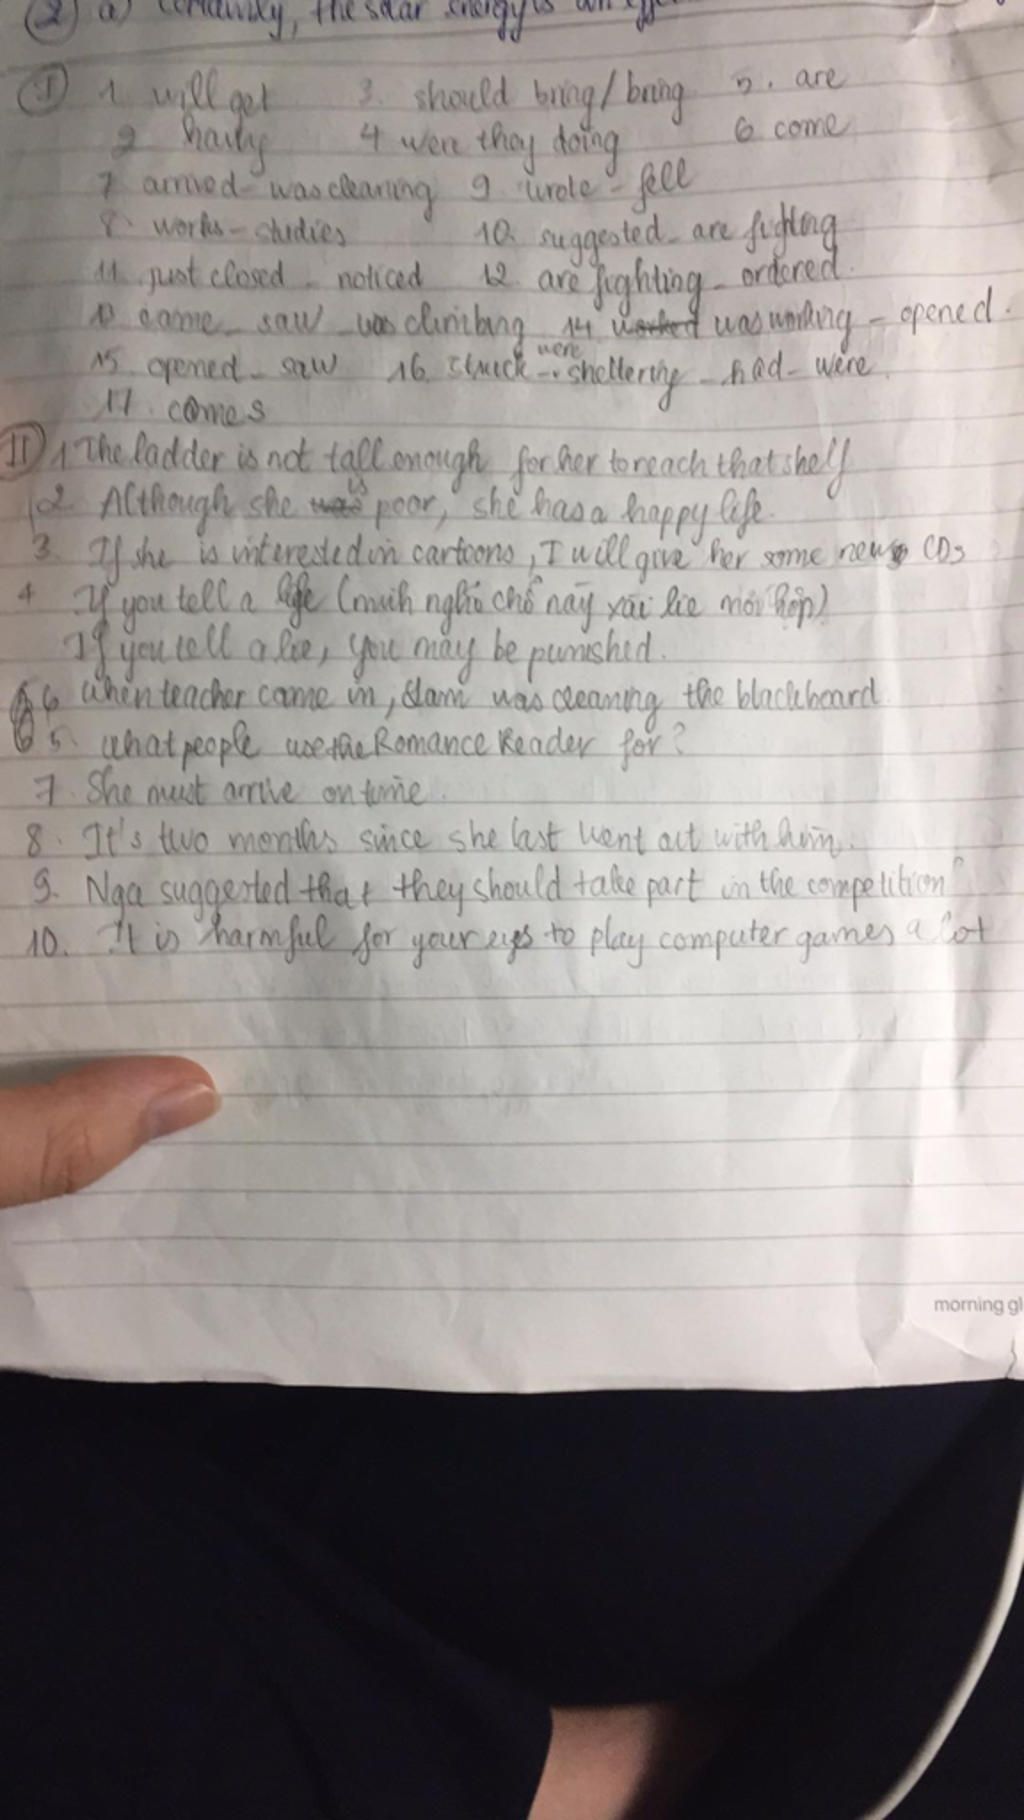 2) a) Certainly, the solar energy is an
I) 1. will get 3. should bring/bring 5. are
2 having 4 were they doing 6 come
7 arrived - was cleaning 9. wrote - fell
8. works - studies 10. suggested - are fighting
11. just closed - noticed 12. are fighting - ordered.
13 came - saw - was climbing 14 worked was working - opened.
15. opened - saw 16. struck - were sheltering - had - were.
17. comes
II) 1 The ladder is not tall enough for her to reach that shelf
2. Although she was is poor, she has a happy life.
3. If she is interested in cartoons, I will give her some new CDs
4 If you tell a life (mình nghĩ chỗ này xài lie mới hợp)
If you tell a lie, you may be punished.
6 When teacher came in, Nam was cleaning the blackboard.
5. what people use the Romance Reader for?
7. She must arrive on time.
8. It's two months since she last went out with him.
9. Nga suggested that they should take part in the competition
10. It is harmful for your eyes to play computer games a lot
morning gl